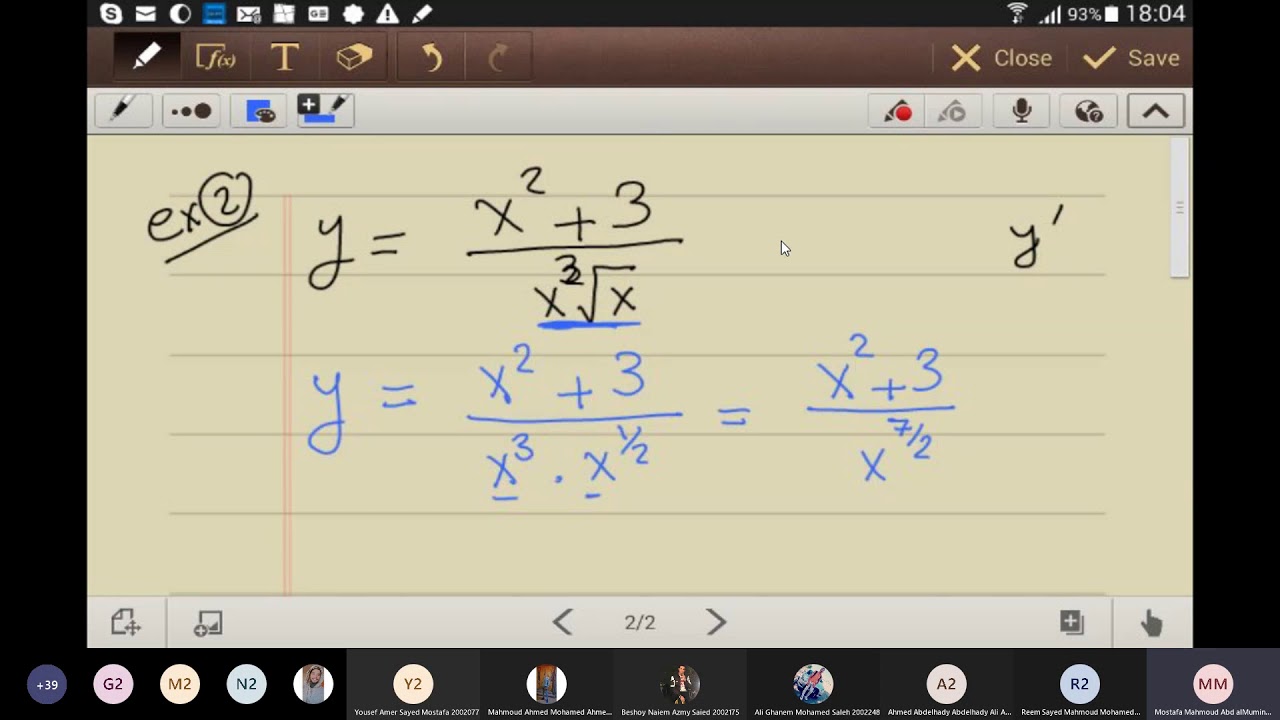 93% 18:04
f(x) T Close Save
ex ② y = x² + 3 / x³√x y′
y = x² + 3 / x³ · x^1/2 = x² + 3 / x^7/2
2/2
+39 G2 M2 N2 Y2 A2 R2 MM
Yousef Amer Sayed Mostafa 2002077 Mahmoud Ahmed Mohamed Ahme... Beshoy Naiem Azmy Saied 2002175 Ali Ghanem Mohamed Saleh 2002248 Ahmed Abdelhady Abdelhady Ali A... Reem Sayed Mahmoud Mohamed... Mostafa Mahmoud Abd alMumin...